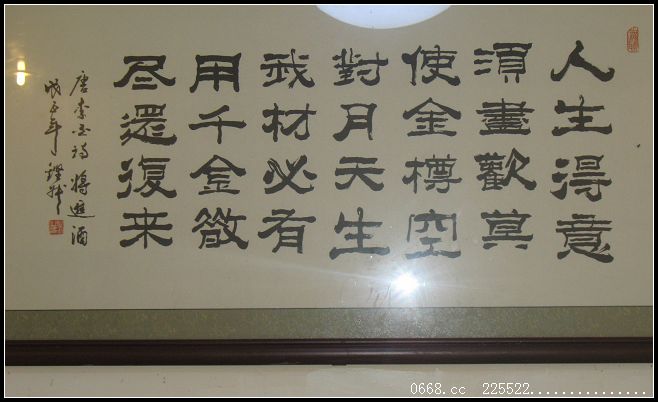 人生得意
須盡歡莫
使金樽空
對月天生
我材必有
用千金散
尽還復来
唐李白詩將進酒
戊子年
0668.cc 225522...............